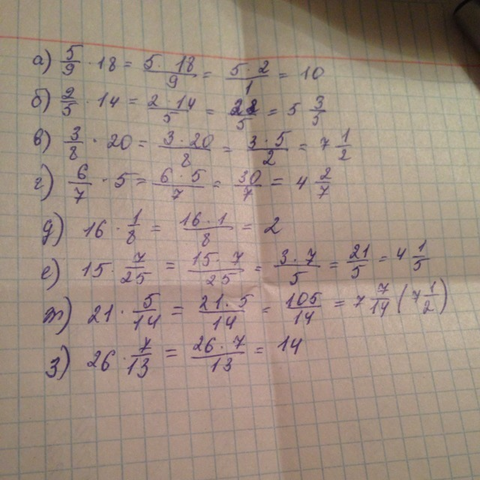 а) 5/9 · 18 = 5 · 18/9 = 5 · 2/1 = 10
б) 2/5 · 14 = 2 · 14/5 = 28/5 = 5 3/5
в) 3/8 · 20 = 3 · 20/8 = 3 · 5/2 = 7 1/2
г) 6/7 · 5 = 6 · 5/7 = 30/7 = 4 2/7
д) 16 · 1/8 = 16 · 1/8 = 2
е) 15 · 7/25 = 15 · 7/25 = 3 · 7/5 = 21/5 = 4 1/5
ж) 21 · 5/14 = 21 · 5/14 = 105/14 = 7 7/14 (7 1/2)
з) 26 · 7/13 = 26 · 7/13 = 14